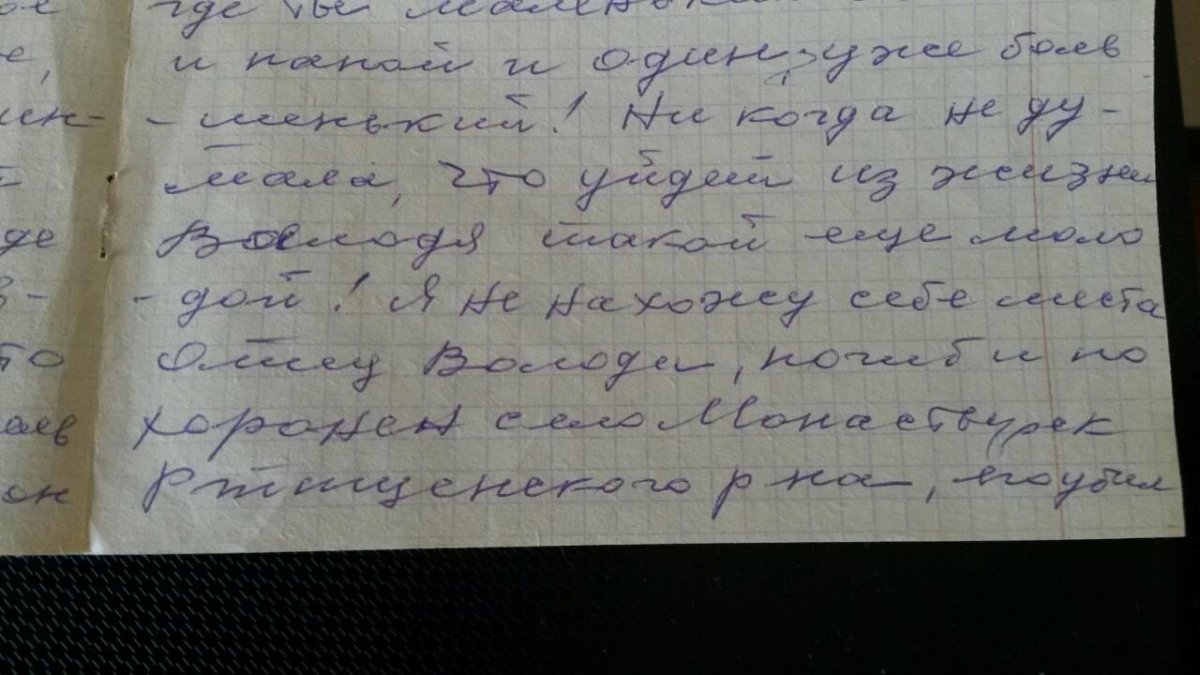 где ты маленький
е,
и папой и один, уже боль
ин-
-шенький! Ни когда не ду-
мала, что уйдет из жизни
де
Володя такой еще моло
в-
-дой! Я не нахожу себе места
то
Отец Володи, погиб и по
аев
хоронен село Монастырек
он
Ртищенского р на, его убил